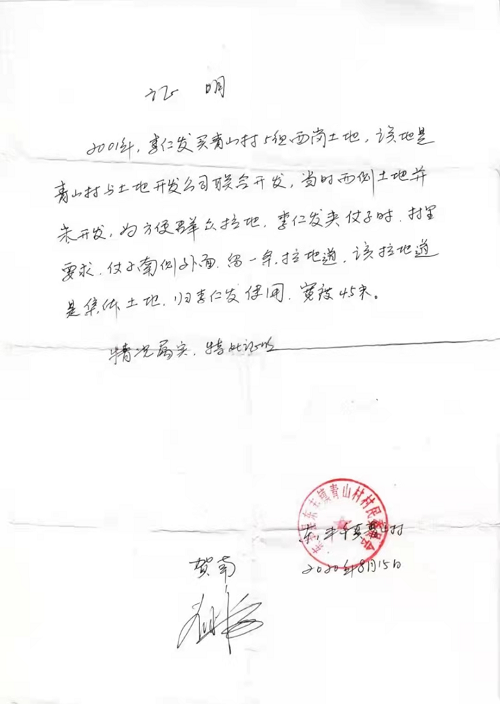 证 明
2001年，李仁发买青山村5组西岗土地，该地是
青山村与土地开发公司联合开发，当时西侧土地并
未开发，为方便群众拉地，李仁发夹仗子时，村里
要求，仗子南侧外面，留一条拉地道，该拉地道
是集体土地，归李仁发使用，宽放45米。
情况属实，特此证明
青山村村民委员会
青山村
贺南
2020年8月15日